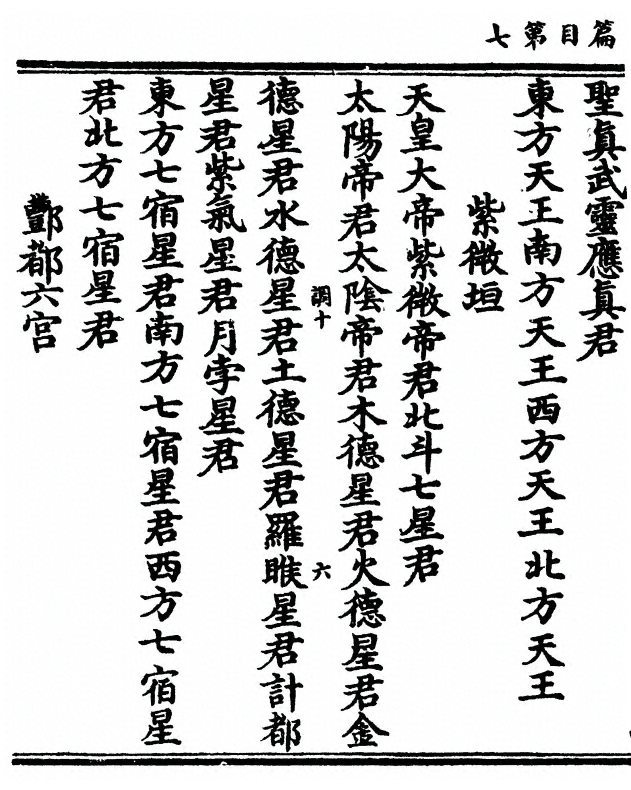 篇目第七
聖眞武靈應眞君
東方天王南方天王西方天王北方天王
紫微垣
天皇大帝紫微帝君北斗七星君
太陽帝君太陰帝君木德星君火德星君金
調十
六
德星君水德星君土德星君羅睺星君計都
星君紫氣星君月孛星君
東方七宿星君南方七宿星君西方七宿星
君北方七宿星君
酆都六宮